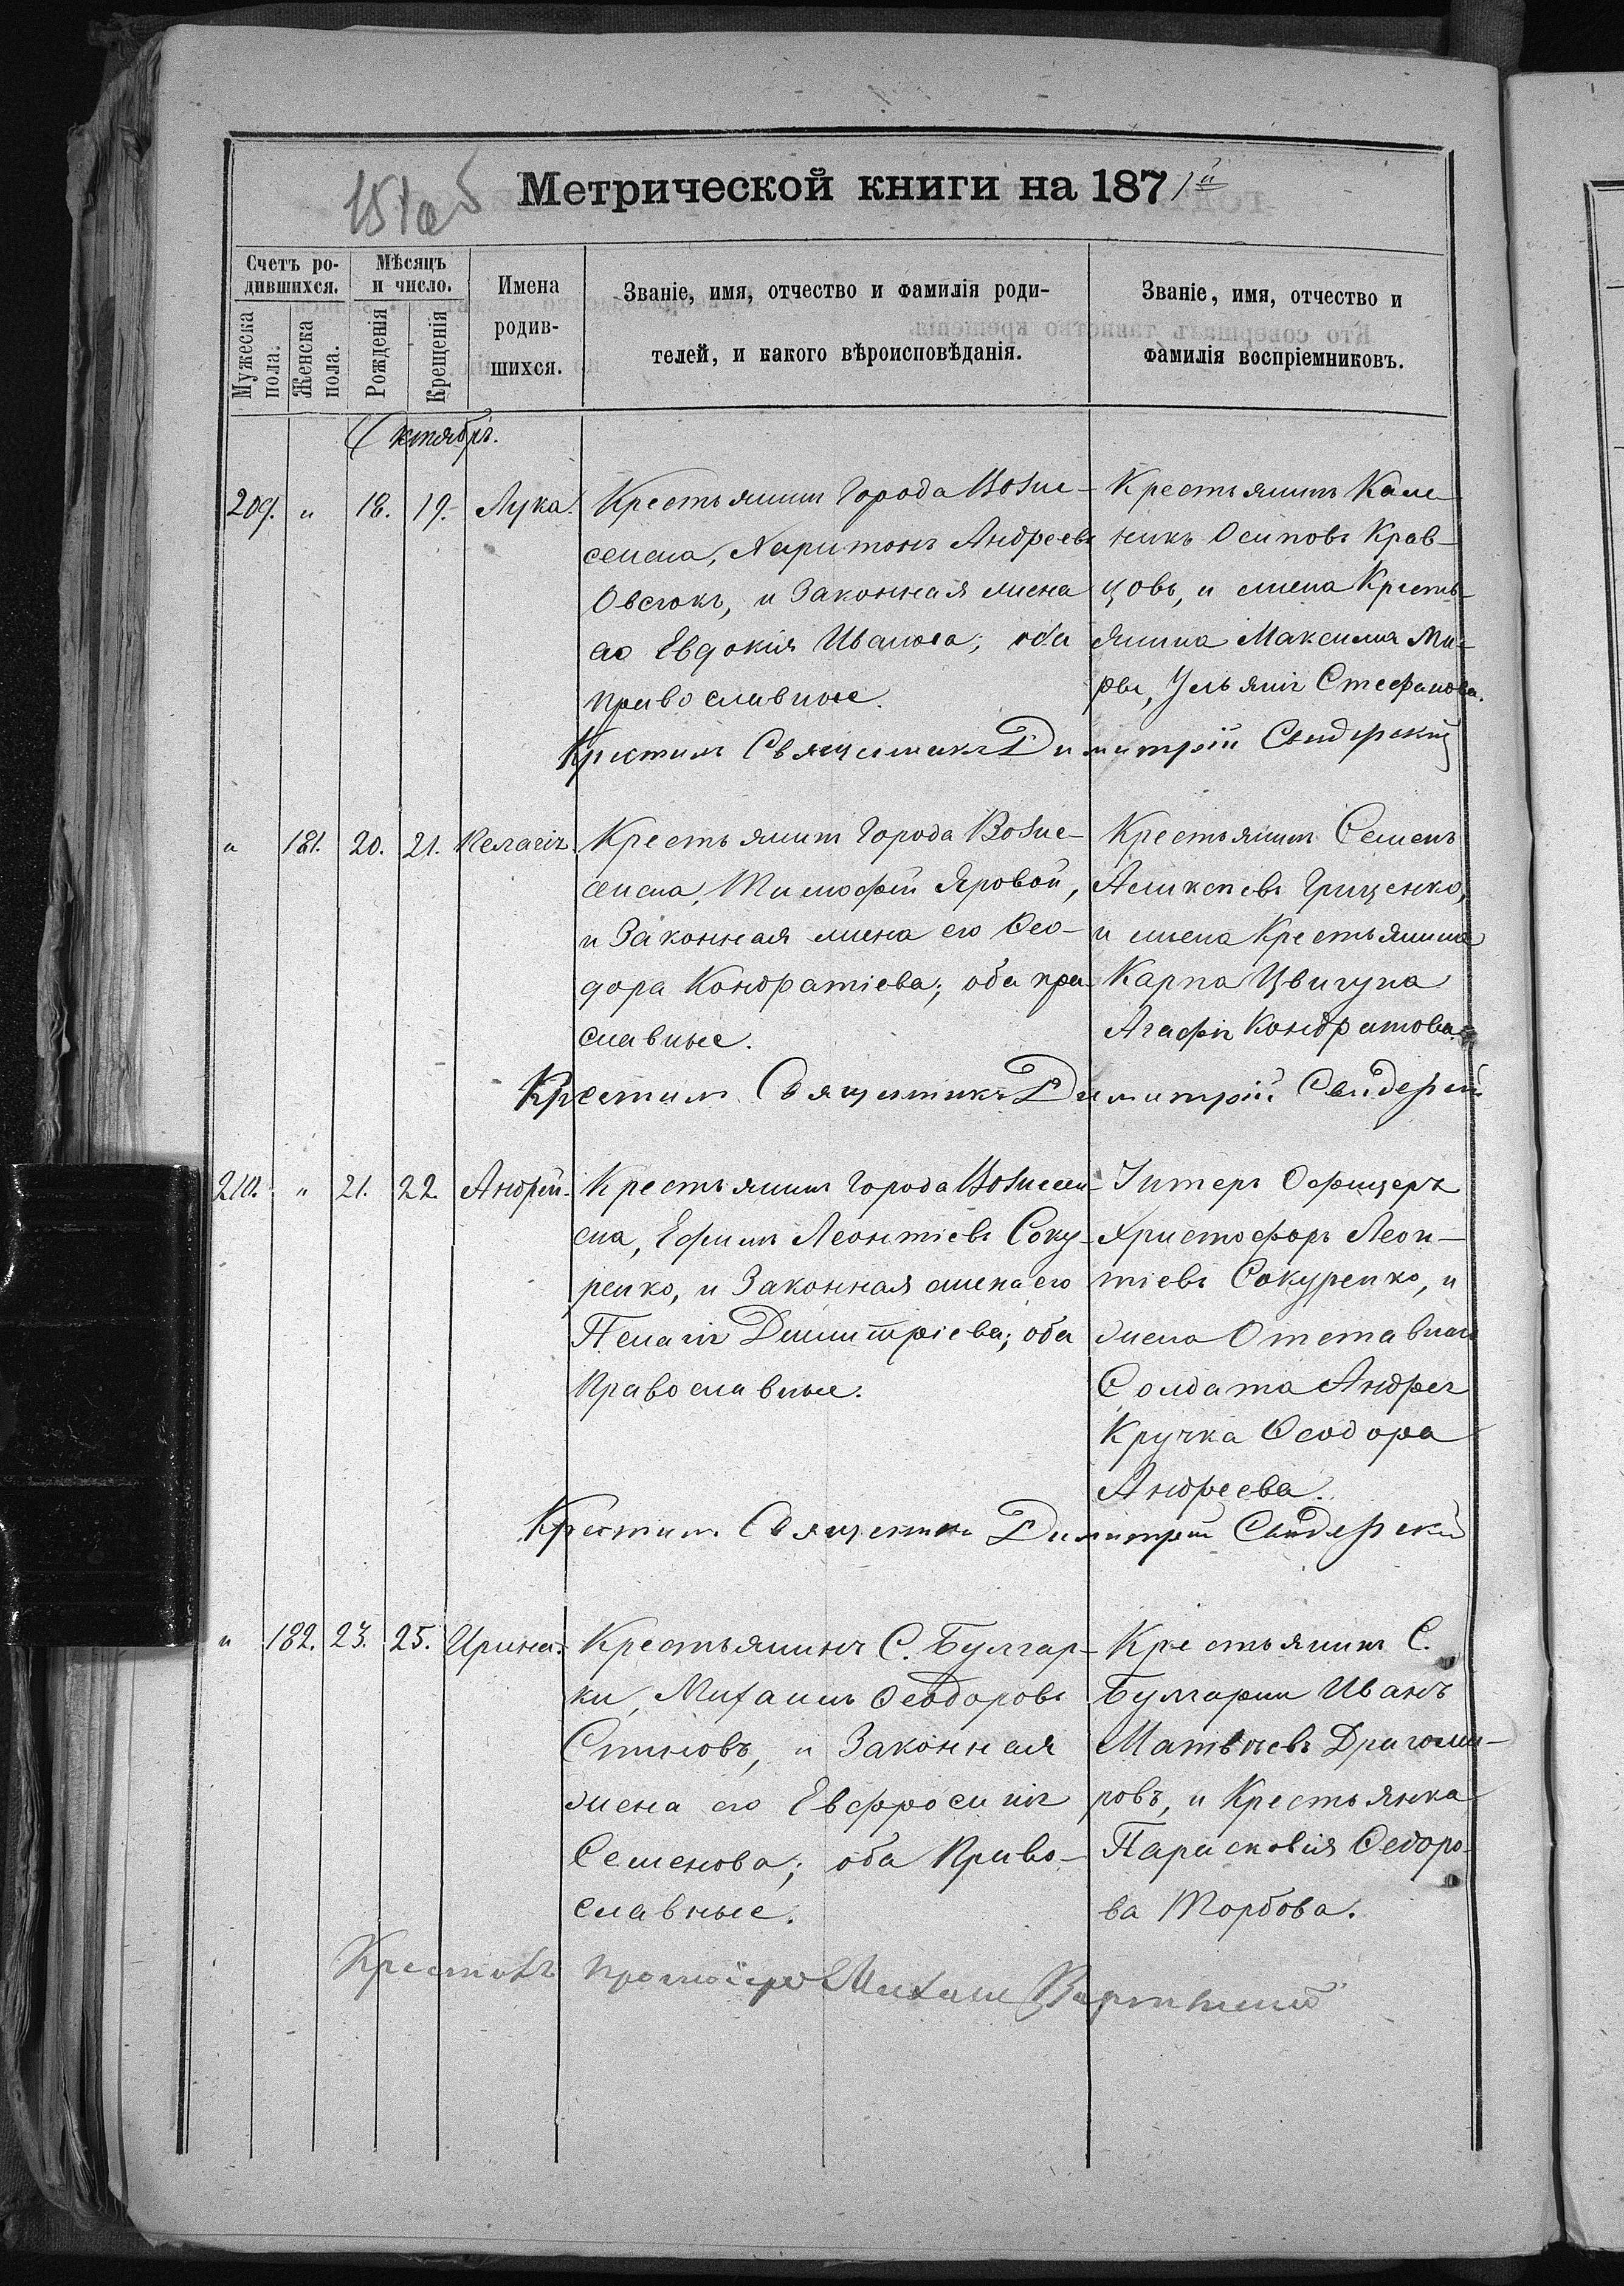 Метрической книги на 1871й
Счетъ ро-
дившихся.
Мѣсяцъ
и число.
Мужеска
пола.
Женска
пола.
Рожденія
Крещенія
Имена
родив-
шихся.
Званіе, имя, отчество и фамилія роди-
телей, и какого вѣроисповѣданія.
Званіе, имя, отчество и
фамилія воспріемниковъ.
Октябрь.
209. " 18. 19. Лука.
Крестьянинъ Города Возне-
сенска, Харитонъ Андреевъ
Овсюкъ, и Законная жена
его Евдокія Иванова; оба
православные.
Крестьянинъ
Осиповъ Крав-
цовъ, и жена Кресть-
янина Максима
Ульянія Стефанова.
Крестилъ Священникъ Димитрій Свидерскій
" 181. 20. 21. Пелагія.
Крестьянинъ Города Возне-
сенска, Тимофей Яровой,
и Законная жена его Ѳео-
дора Кондратіева; оба пра
славные.
Крестьянинъ Семенъ
Алексѣевъ Грищенко,
и жена Крестьянина
Карпа Цвигуна
Агафія Кондратова.
Крестилъ Священникъ Димитрій
210. " 21. 22. Андрей.
Крестьянинъ Города Вознесен-
ска, Ефимъ Леонтіевъ Соку-
ренко, и Законная жена его
Пелагія Димитріева; оба
Православные.
Унтеръ Офицеръ
Христофоръ Леон-
тіевъ Сокуренко, и
жена Отставнаго
Солдата Андрея
Кручка Ѳеодора
Андреева.
Крестилъ Священникъ Димитрій Свидерскій
" 182. 23. 25. Ирина.
Крестьянинъ С. Булгар-
ки, Михаилъ Ѳеодоровъ
Стиновъ, и Законная
жена его Евфросинія
Семенова; оба Право-
славные.
Крестьянинъ С.
Булгарки Иванъ
Матвѣевъ Драгоми-
ровъ, и Крестьянка
Парасковія Ѳеодоро-
ва Торбова.
Крестилъ Протоіерей Михаилъ